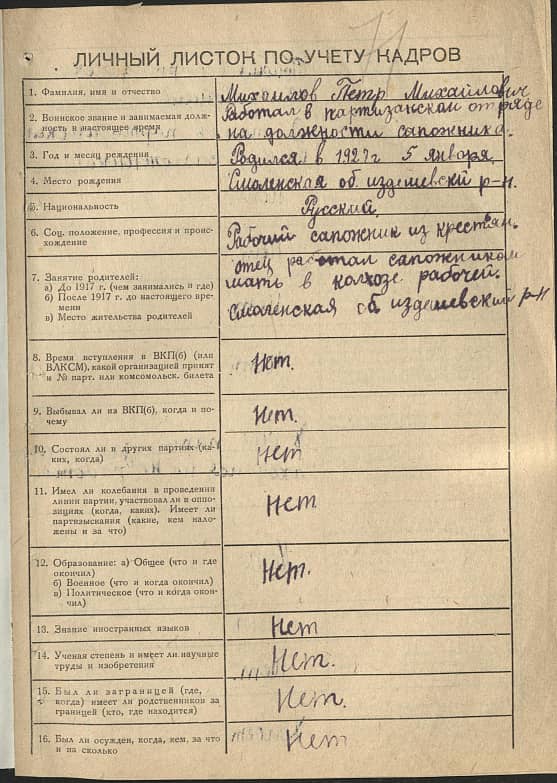 71
ЛИЧНЫЙ ЛИСТОК ПО УЧЕТУ КАДРОВ
1. Фамилия, имя и отчество
Михайлов Петр Михайлович
2. Воинское звание и занимаемая долж-
ность в настоящее время
Работал в партизанском отряде
на должности сапожника.
3. Год и месяц рождения
Родился в 1927г 5 января,
4. Место рождения
Смоленская об. издешевский р-н.
5. Национальность
Русский.
6. Соц. положение, профессия и проис-
хождение
Рабочий сапожник из крестян.
7. Занятие родителей:
а) До 1917 г. (чем занимались и где)
б) После 1917 г. до настоящего вре-
мени
в) Место жительства родителей
отец работал сапожником
мать в колхозе рабочей.
Смоленская об издешевский р-н
8. Время вступления в ВКП(б) (или
ВЛКСМ), какой организацией принят
и № парт. или комсомольск. билета
Нет.
9. Выбывал ли из ВКП(б), когда и по-
чему
Нет.
10. Состоял ли в других партиях (ка-
ких, когда)
Нет
11. Имел ли колебания в проведении
линии партии, участвовал ли в оппо-
зициях (когда, каких). Имеет ли
партвзыскания (какие, кем нало-
жены и за что)
Нет
12. Образование: а) Общее (что и где
окончил)
б) Военное (что и когда окончил)
в) Политическое (что и когда окон-
чил)
Нет.
13. Знание иностранных языков
Нет
14. Ученая степень и имеет ли научные
труды и изобретения
Нет.
15. Был ли заграницей (где,
когда) имеет ли родственников за
границей (кто, где находится)
Нет.
16. Был ли осужден, когда, кем, за что
и на сколько
Нет